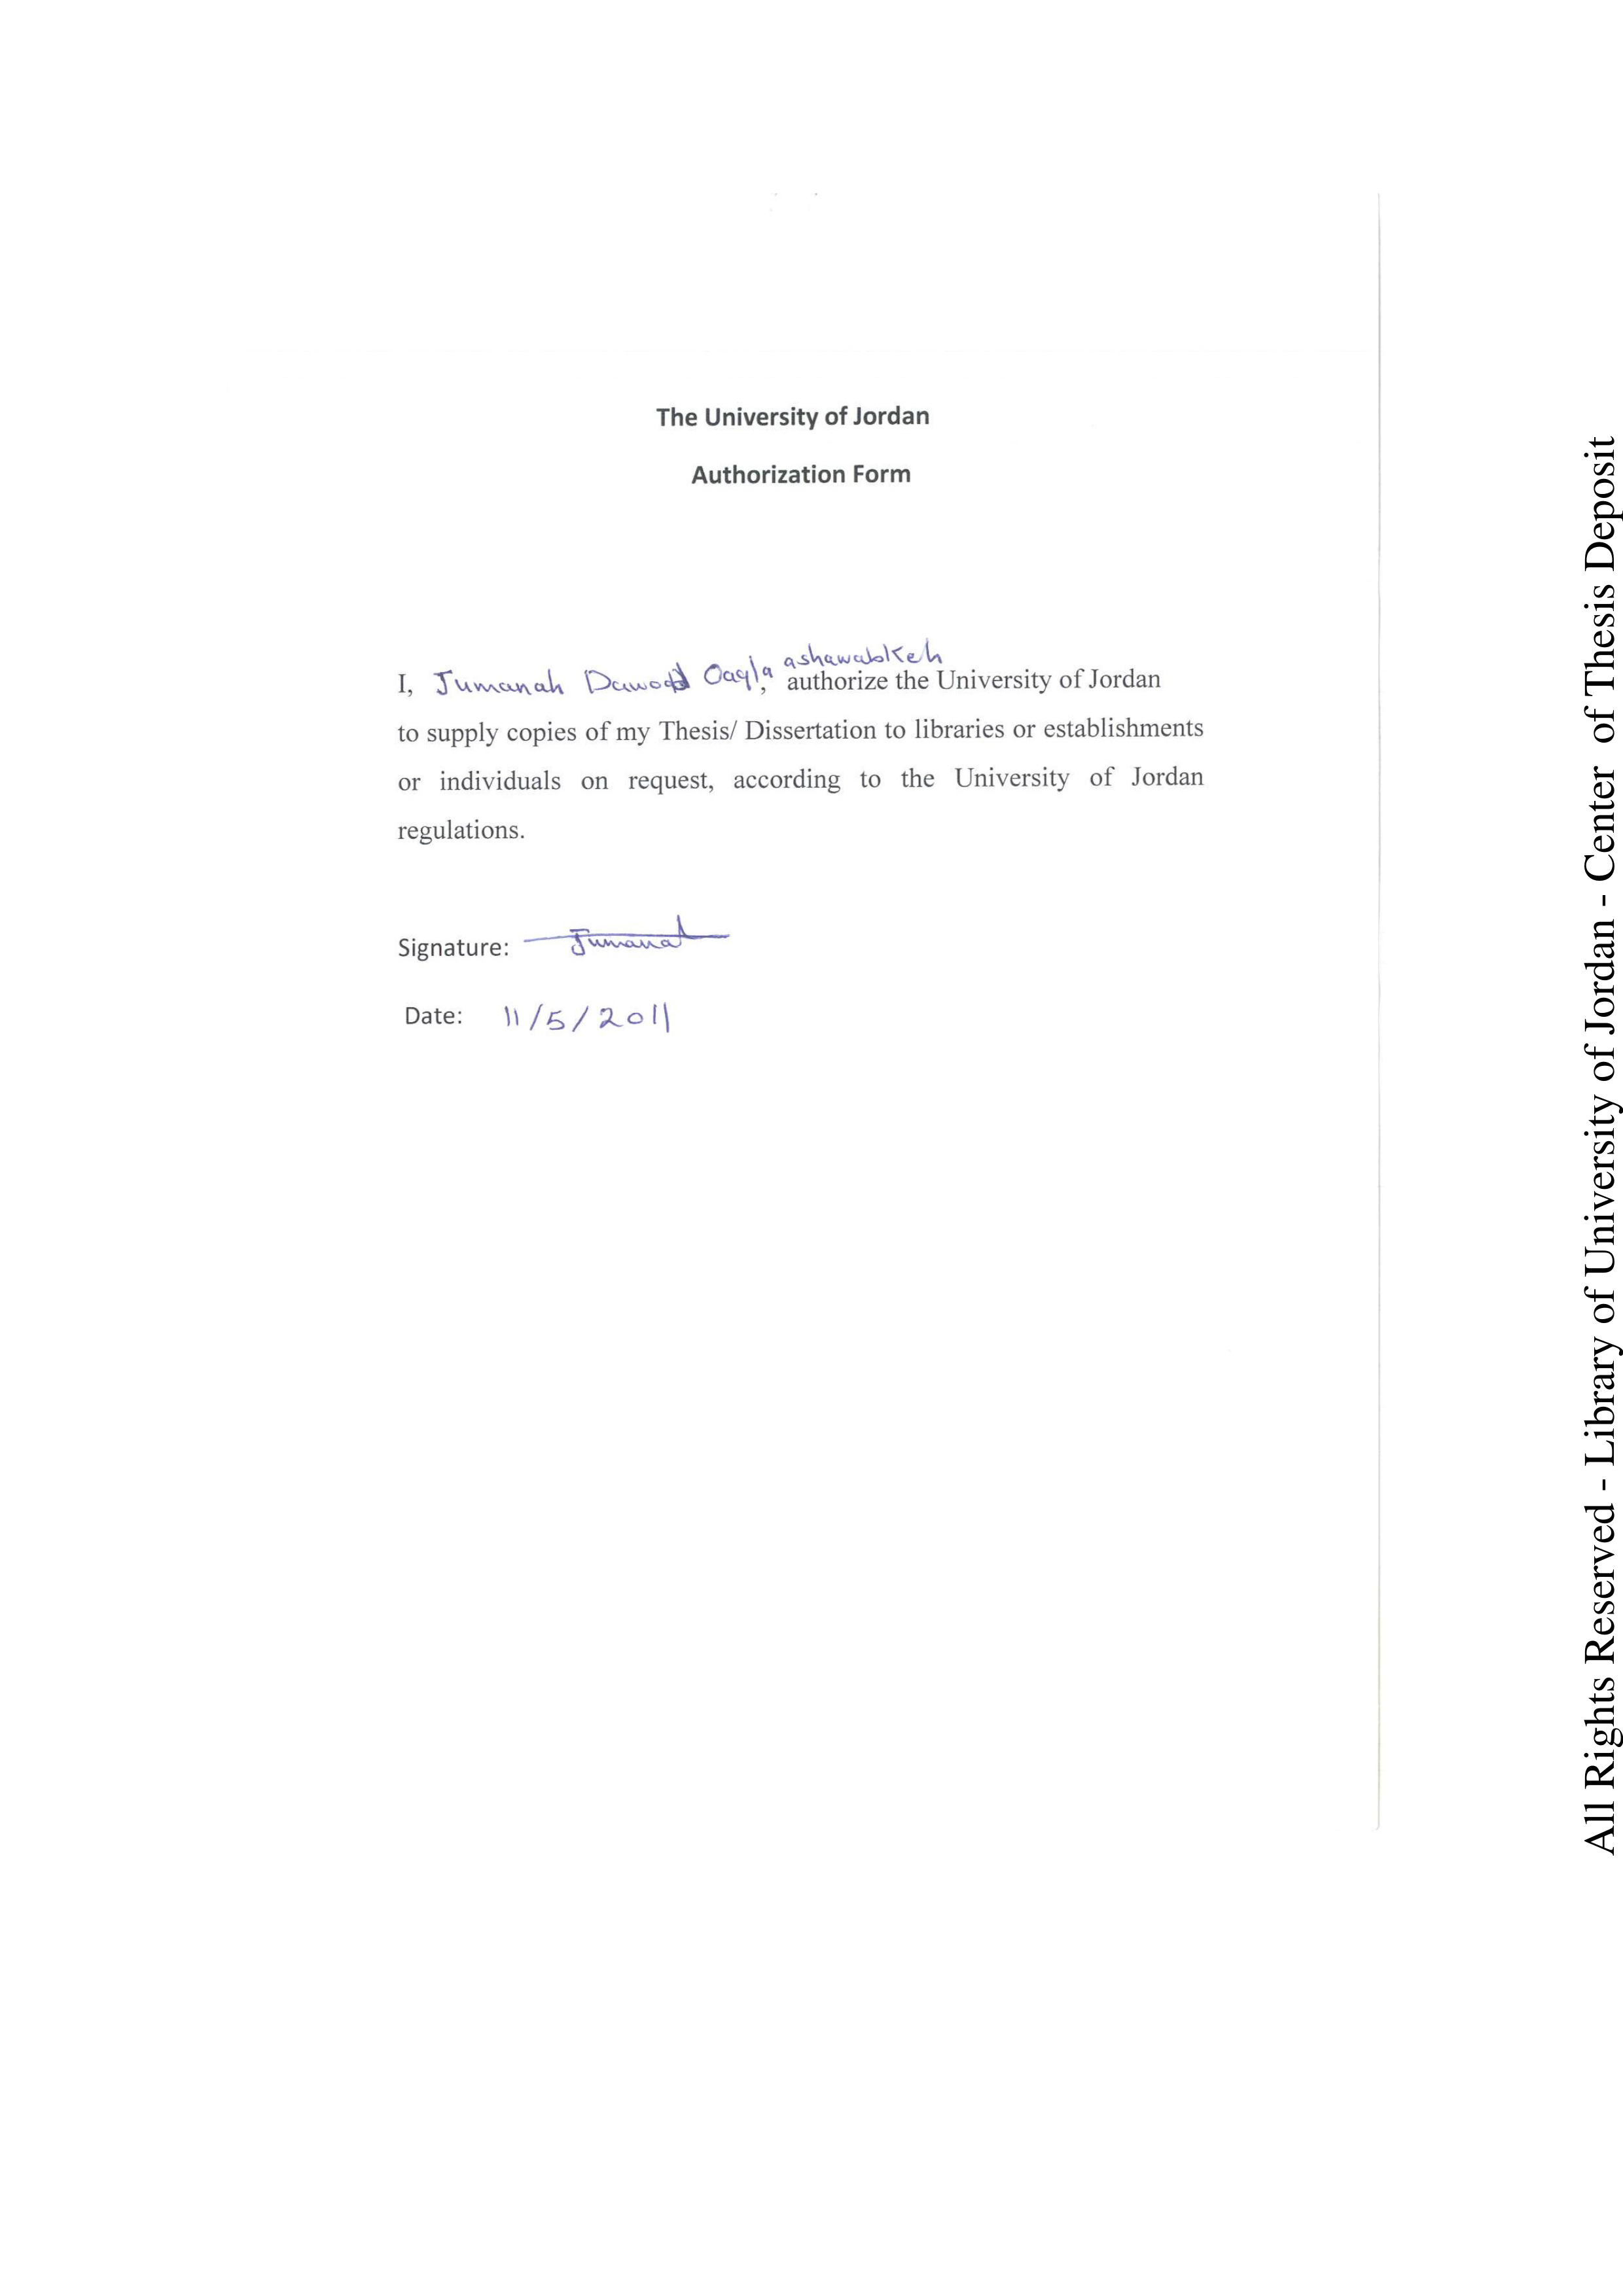 The University of Jordan
Authorization Form
I, Jumanah Dawood Oaqla ashawabkeh, authorize the University of Jordan
to supply copies of my Thesis/ Dissertation to libraries or establishments
or individuals on request, according to the University of Jordan
regulations.
Signature: Jumanah
Date: 11/5/2011
All Rights Reserved - Library of University of Jordan - Center of Thesis Deposit